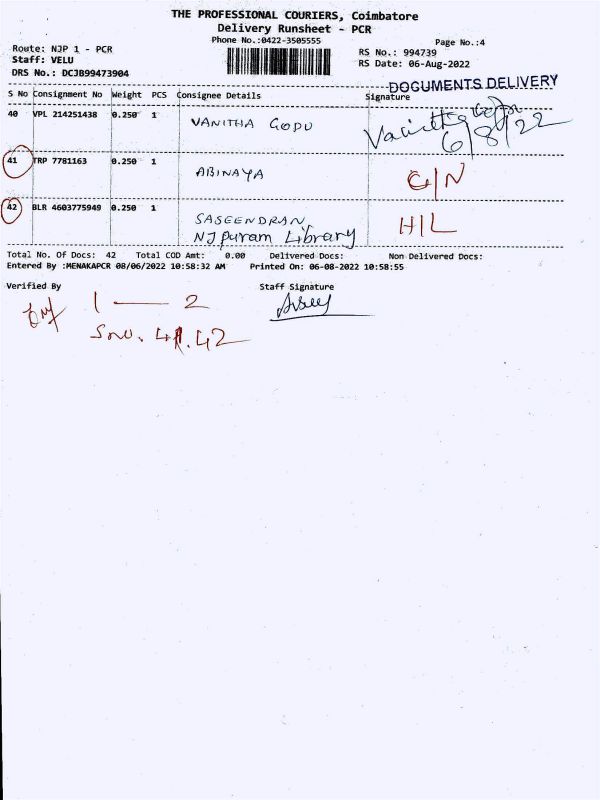 THE PROFESSIONAL COURIERS, Coimbatore
Delivery Runsheet - PCR
Phone No.:0422-3505555
Page No.:4
Route: NJP 1 - PCR
RS No.: 994739
Staff: VELU
RS Date: 06-Aug-2022
DRS No.: DCJB99473904
DOCUMENTS DELIVERY
S No Consignment No Weight PCS Consignee Details Signature
40 VPL 214251438 0.250 1 VANITHA GOPU
6/8/22
41 TRP 7781163 0.250 1 ABINAYA G/N
42 BLR 4603775949 0.250 1 SASEENDRAN H/L
NJ Puram Library
Total No. Of Docs: 42 Total COD Amt: 0.00 Delivered Docs: Non Delivered Docs:
Entered By :MENAKAPCR 08/06/2022 10:58:32 AM Printed On: 06-08-2022 10:58:55
Verified By Staff Signature
1 — 2
S.no. 41.42